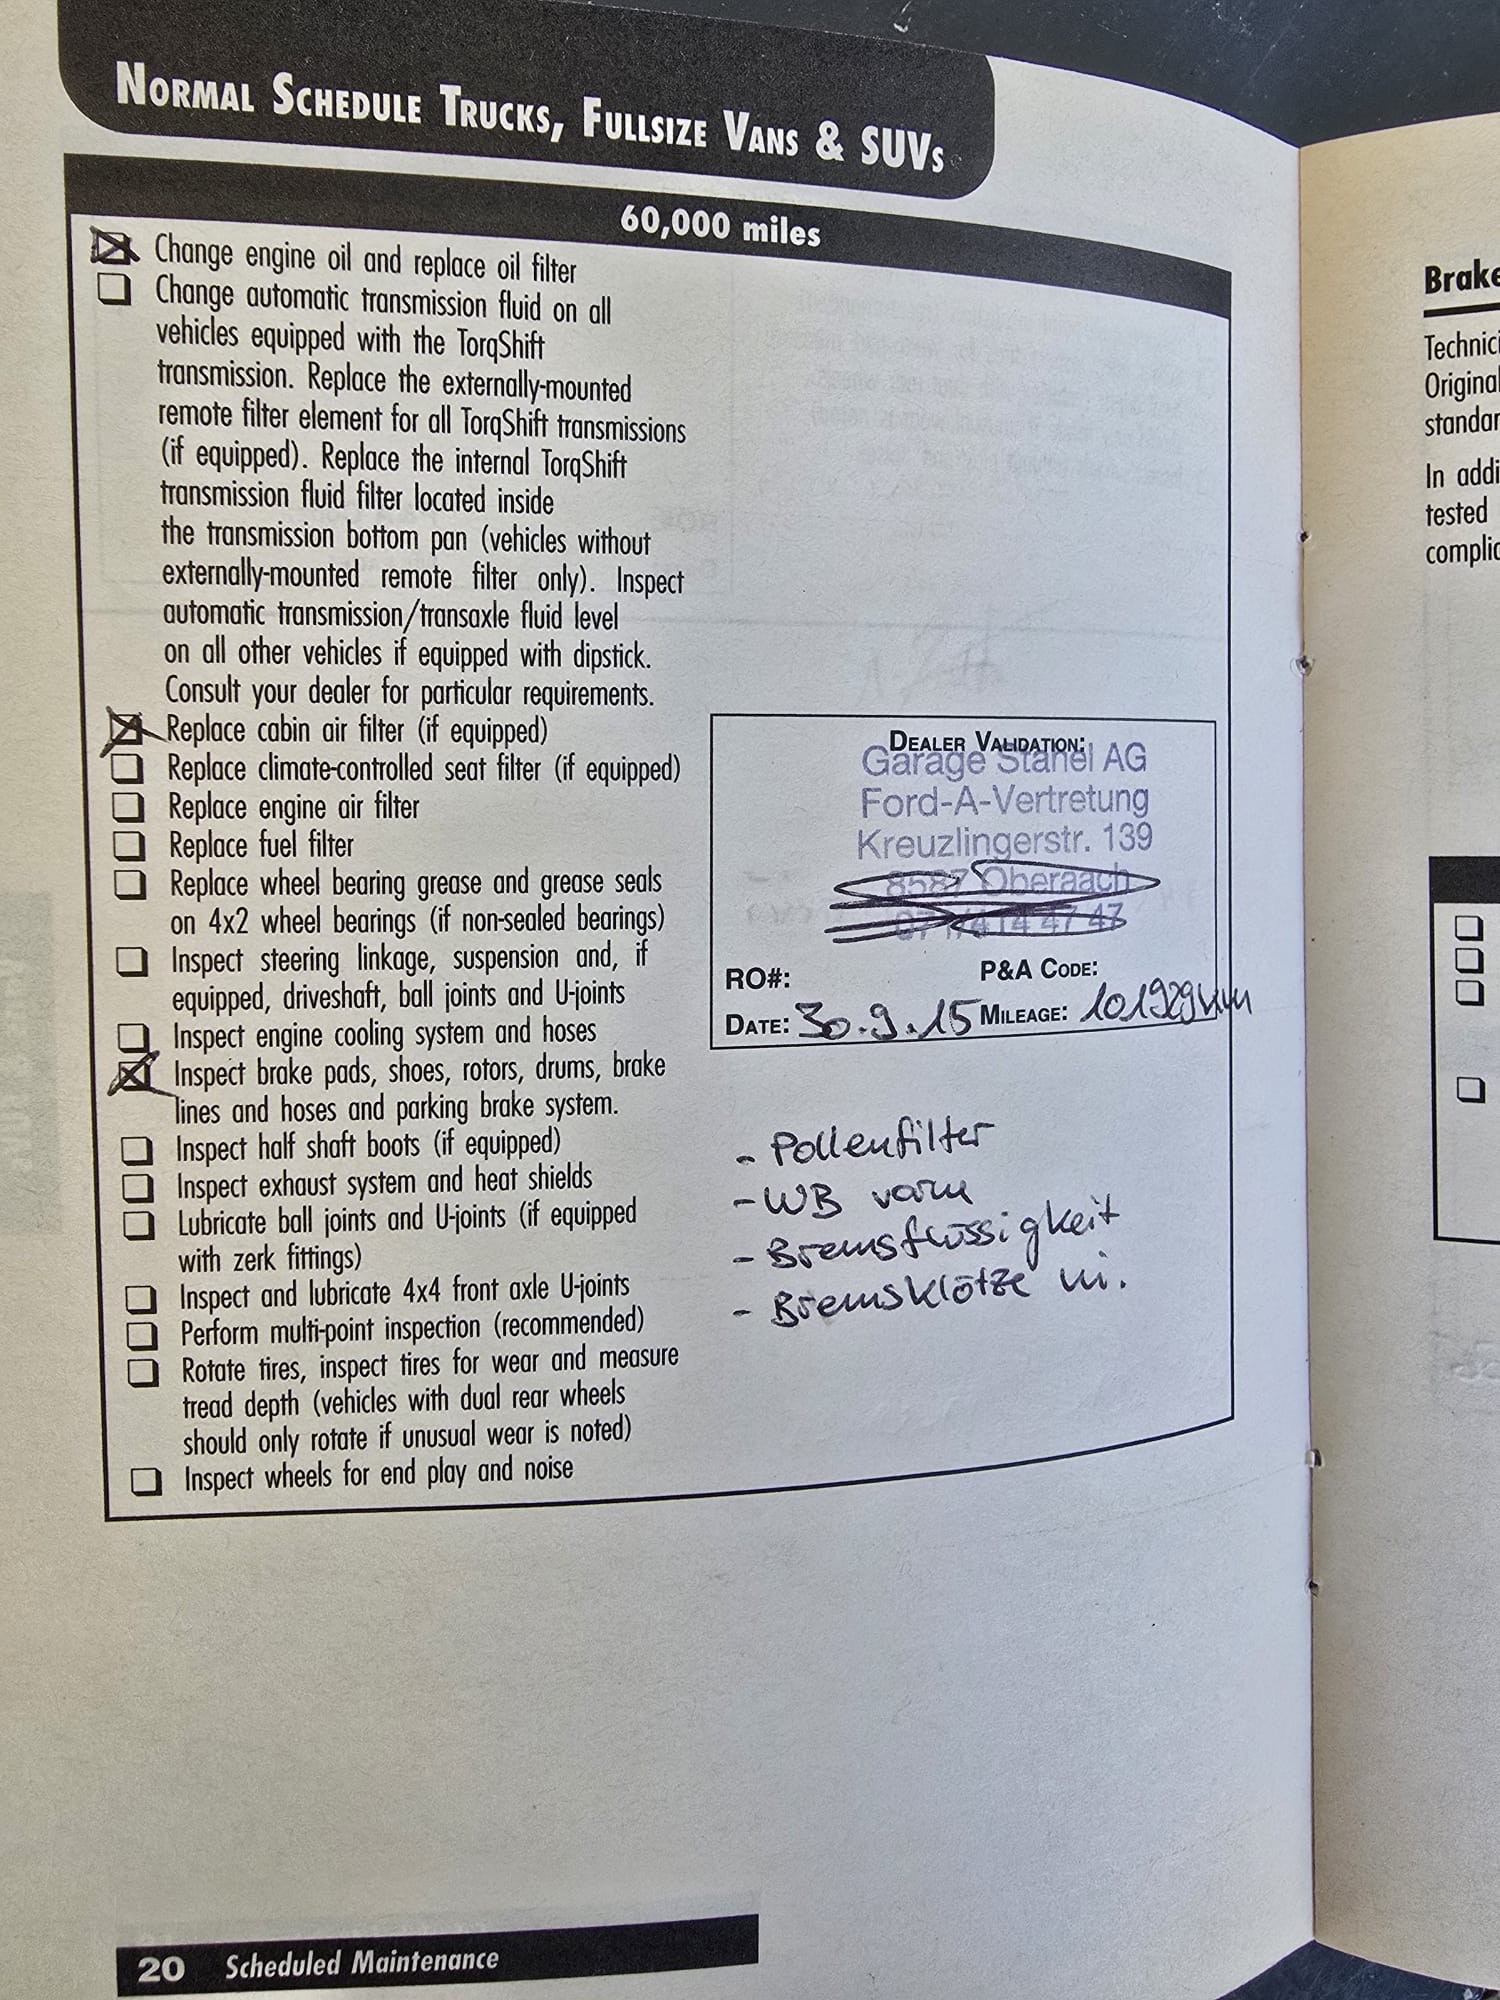 NORMAL SCHEDULE TRUCKS, FULLSIZE VANS & SUVS
60,000 miles
Change engine oil and replace oil filter
Change automatic transmission fluid on all
vehicles equipped with the TorqShift
transmission. Replace the externally-mounted
remote filter element for all TorqShift transmissions
(if equipped). Replace the internal TorqShift
transmission fluid filter located inside
the transmission bottom pan (vehicles without
externally-mounted remote filter only). Inspect
automatic transmission/transaxle fluid level
on all other vehicles if equipped with dipstick.
Consult your dealer for particular requirements.
Replace cabin air filter (if equipped)
Replace climate-controlled seat filter (if equipped)
Replace engine air filter
Replace fuel filter
Replace wheel bearing grease and grease seals
on 4x2 wheel bearings (if non-sealed bearings)
Inspect steering linkage, suspension and, if
equipped, driveshaft, ball joints and U-joints
Inspect engine cooling system and hoses
Inspect brake pads, shoes, rotors, drums, brake
lines and hoses and parking brake system.
Inspect half shaft boots (if equipped)
Inspect exhaust system and heat shields
Lubricate ball joints and U-joints (if equipped
with zerk fittings)
Inspect and lubricate 4x4 front axle U-joints
Perform multi-point inspection (recommended)
Rotate tires, inspect tires for wear and measure
tread depth (vehicles with dual rear wheels
should only rotate if unusual wear is noted)
Inspect wheels for end play and noise
DEALER VALIDATION:
Garage Stahel AG
Ford-A-Vertretung
Kreuzlingerstr. 139
8587 Oberaach
RO#:
P&A CODE:
DATE: 30.9.15 MILEAGE: 101929km
- Pollenfilter
- WB vorn
- Bremsflüssigkeit
- Bremsklötze
20 Scheduled Maintenance
Brake
Technici
Original
standar
In addi
tested
complia